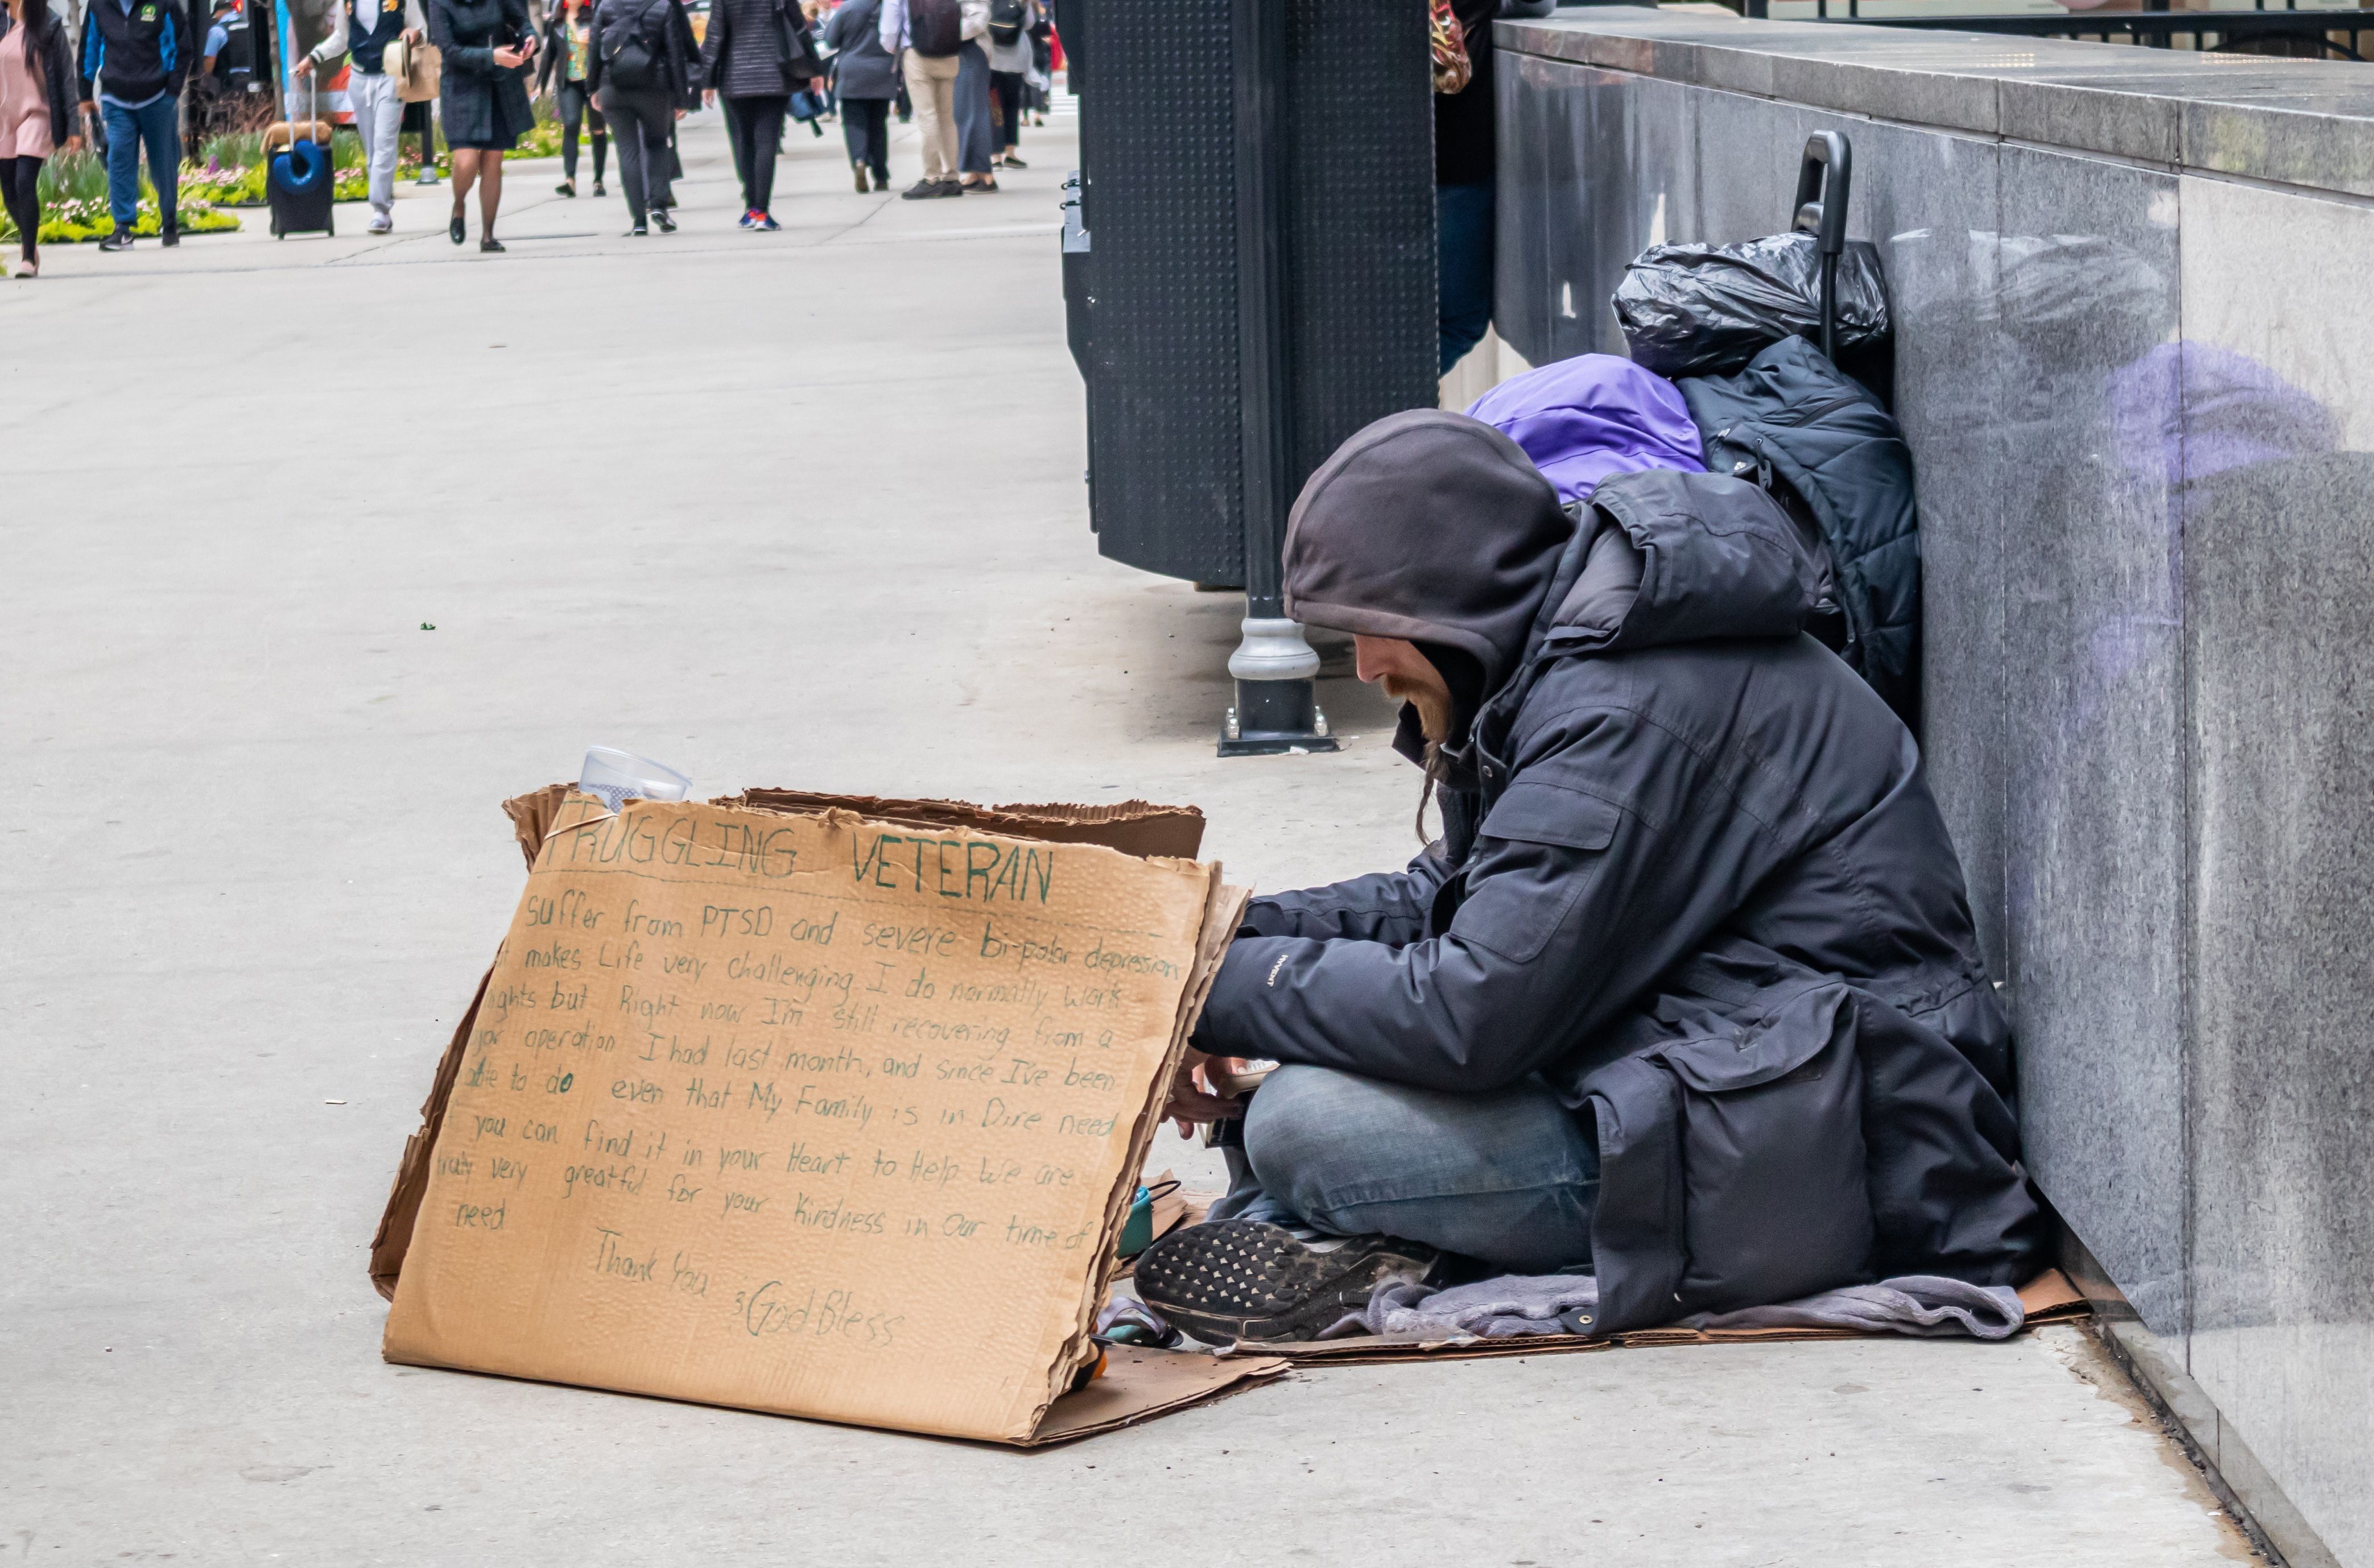 TRUGGLING VETERAN
suffer from PTSD and severe bi-polar depression
t makes Life very challenging I do normally work
ights but Right now I'm still recovering from a
jor operation I had last month, and since I've been
able to do even that My Family is in Dire need
you can find it in your Heart to Help We are
very greatful for your Kindness in Our time of
need
Thank You
God Bless